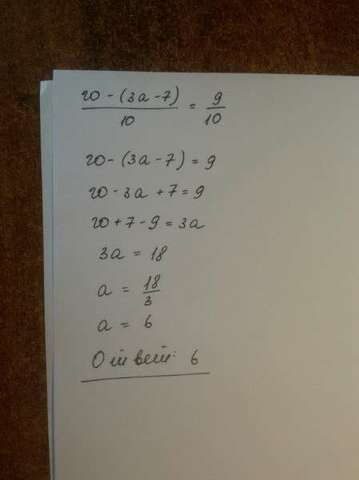 20 - (3a - 7) / 10 = 9 / 10
20 - (3a - 7) = 9
20 - 3a + 7 = 9
20 + 7 - 9 = 3a
3a = 18
a = 18 / 3
a = 6
Ответ: 6